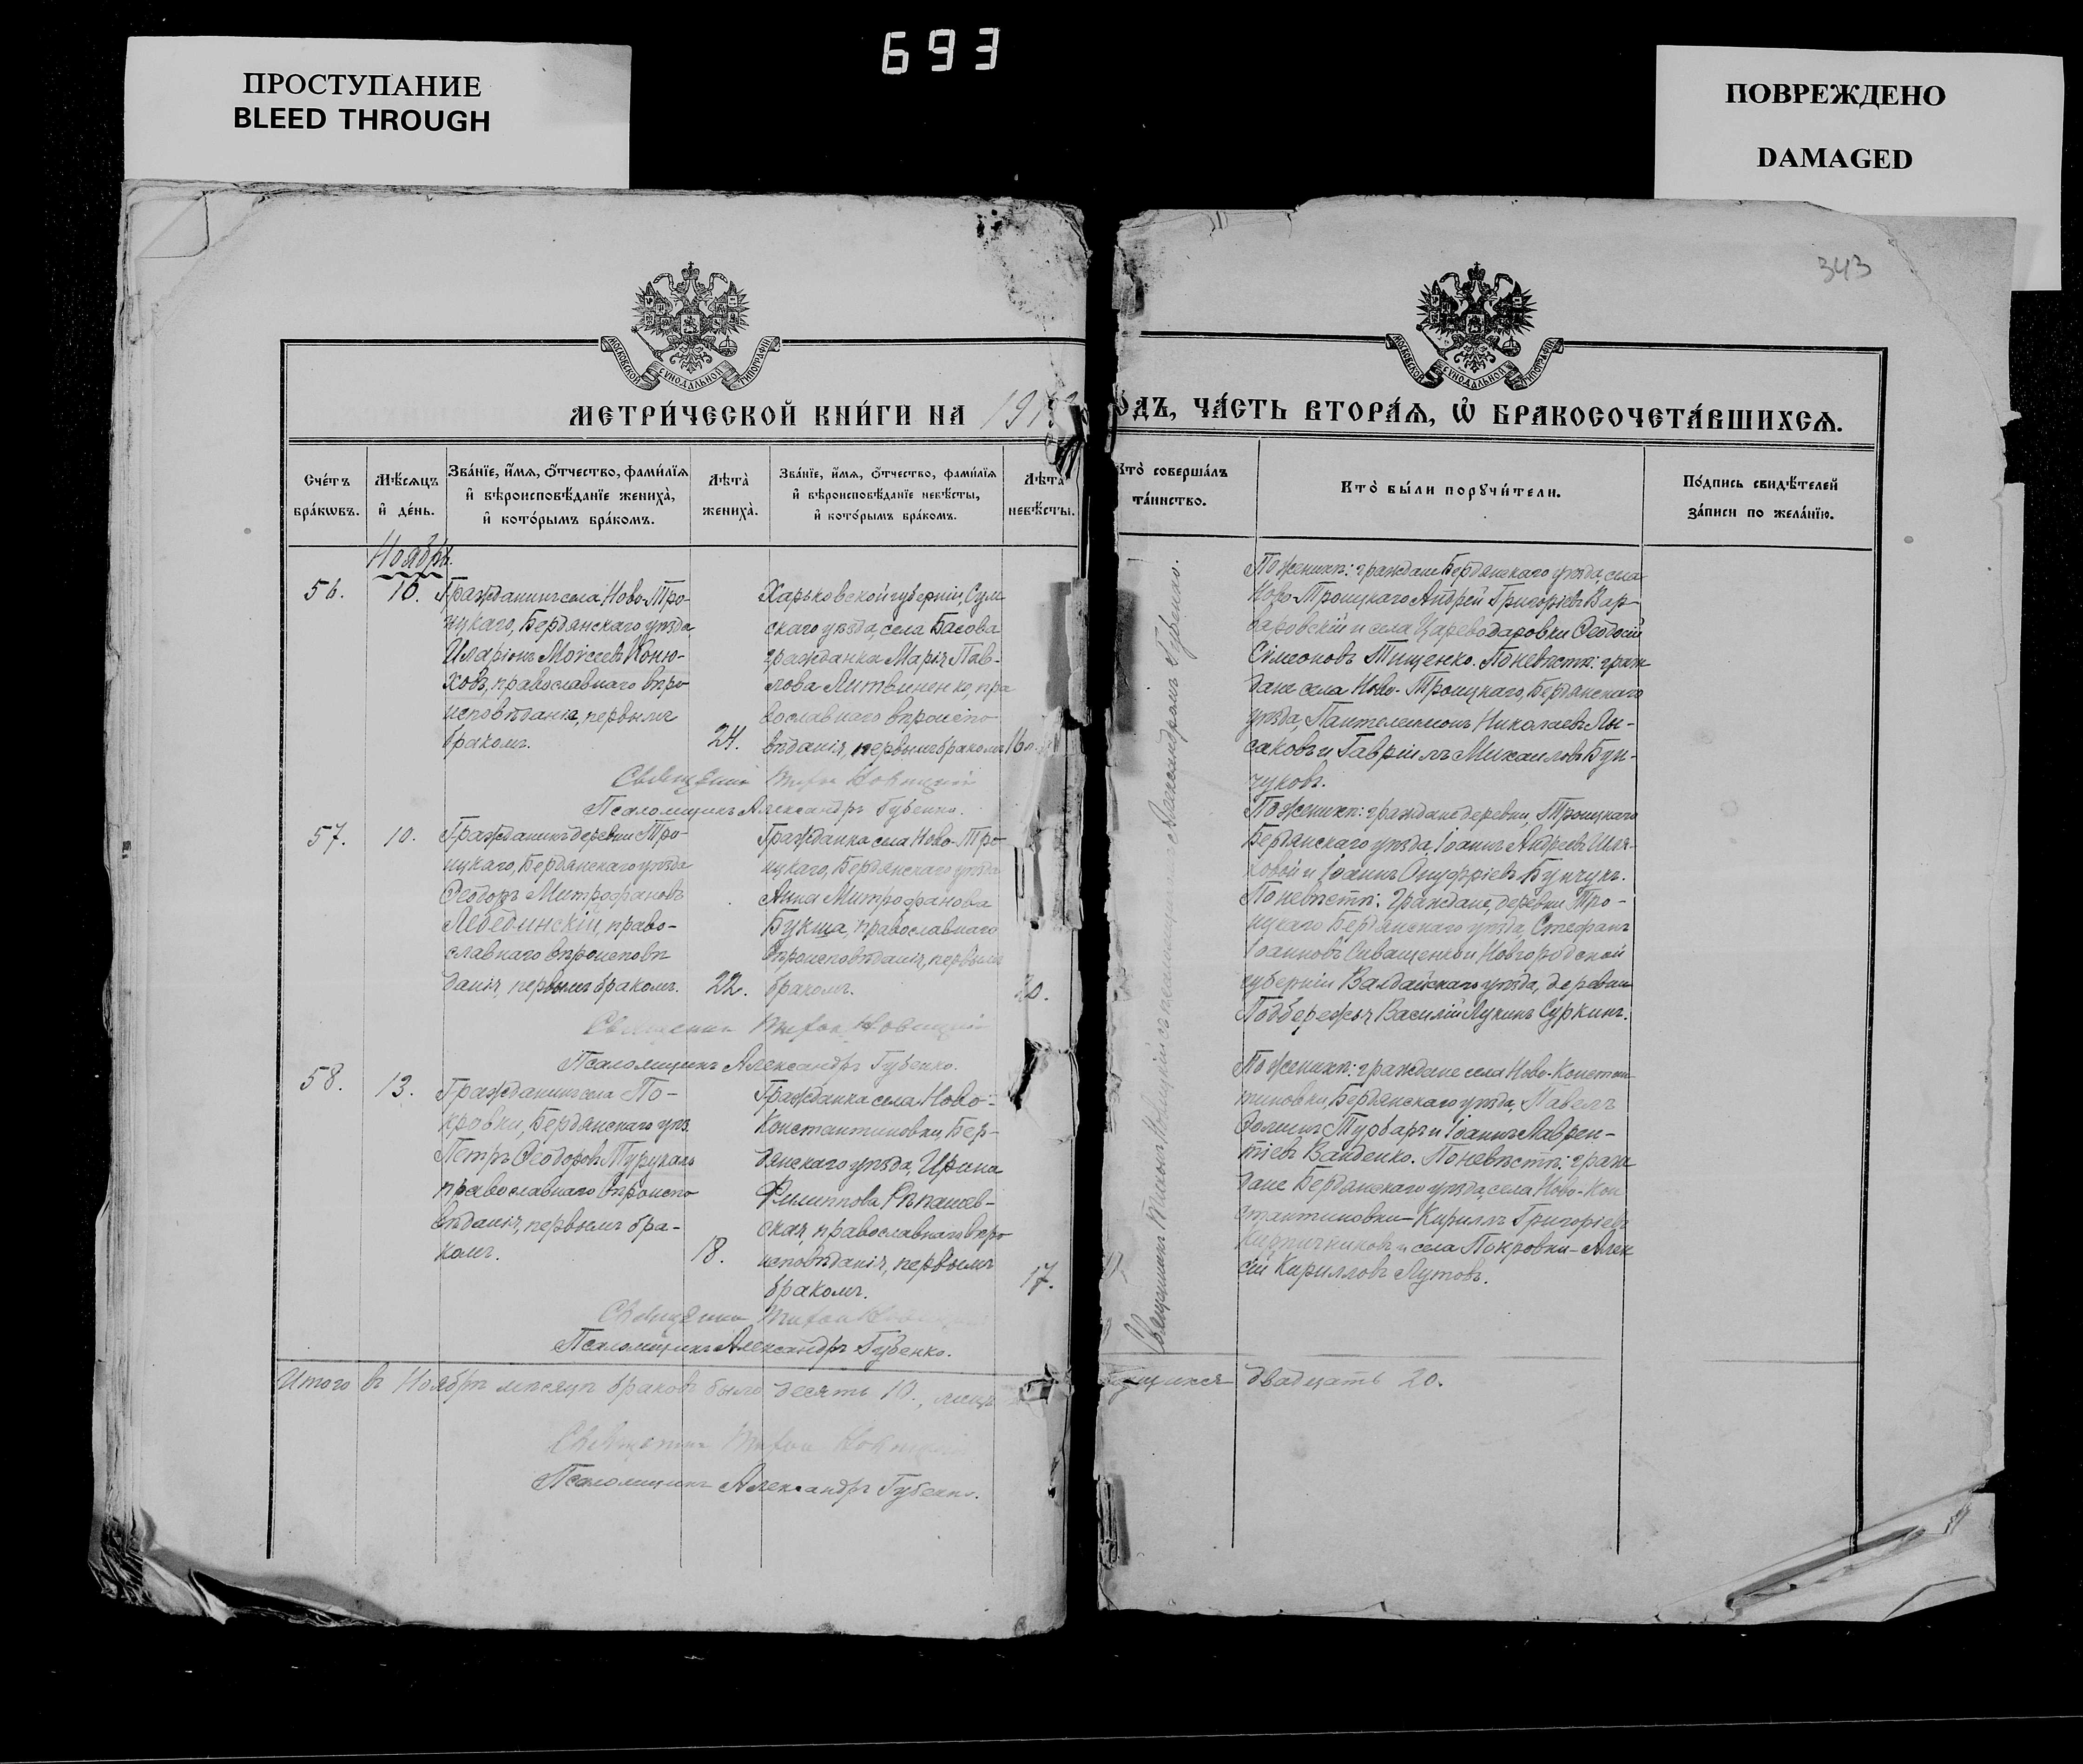 693
ПРОСТУПАНИЕ
BLEED THROUGH
ПОВРЕЖДЕНО
DAMAGED
343
МОСКОВСКОЙ СѴНОДАЛЬНОЙ ТИПОГРАФІИ
МОСКОВСКОЙ СѴНОДАЛЬНОЙ ТИПОГРАФІИ
МЕТРИ́ЧЕСКОЙ КНИ́ГИ НА 191
ОДЪ, ЧА́СТЬ ВТОРА́Ѧ, Ѡ҆ БРАКОСОЧЕТА́ВШИХСѦ.
Сче́тъ бра́кѡвъ.
Мѣ́сѧцъ и҆ де́нь.
Зва́нїе, и҆́мѧ, ѻ҆́тчество, фами́лїѧ и҆ вѣроисповѣ́данїе жениха̀, и҆ кото́рымъ бра́комъ.
Лѣта̀ жениха̀.
Зва́нїе, и҆́мѧ, ѻ҆́тчество, фами́лїѧ и҆ вѣроисповѣ́данїе невѣ́сты, и҆ кото́рымъ бра́комъ.
Лѣта̀ невѣ́сты.
Кто̀ соверша́лъ та́инство.
Кто̀ бы́ли порꙋчи́тели.
По́дпись свидѣ́телей за́писи по жела́нїю.
Ноябрь.
56.
10.
Гражданинъ села Ново-Тро-
ицкаго, Бердянскаго уѣзда
Иларіонъ Моѵсеевъ Коню-
ховъ, православнаго вѣро
исповѣданія, первымъ
бракомъ.
24.
Харьковской губерніи, Сум-
скаго уѣзда, села Басова
гражданка Марія Пав-
лова Литвиненко, пра
вославнаго вѣроиспо
вѣданія, первымъ бракомъ
16
Священникъ Тихон Новицкій
Псаломщикъ Александръ Губенко.
По женихѣ: граждане Бердянскаго уѣзда, села
Ново-Троицкаго Андрей Григоріевъ Вар-
варовскій и села Цареводаровки Ѳеодосій
Сѵмеоновъ Тищенко. По невѣстѣ: граж
дане села Ново-Троицкаго, Бердянскаго
уѣзда, Пантелеимонъ Николаевъ Лы-
саковъ и Гавріилъ Михаиловъ Бун-
чуковъ.
57.
10.
Гражданинъ деревни Тро-
ицкаго, Бердянскаго уѣзда
Ѳеодоръ Митрофановъ
Лебединскій, право-
славнаго вѣроисповѣ
данія, первымъ бракомъ.
22.
Гражданка села Ново-Тро-
ицкаго, Бердянскаго уѣзда
Анна Митрофанова
Букша, православнаго
вѣроисповѣданія, первымъ
бракомъ.
20.
Священникъ Тихон Новицкій
Псаломщикъ Александръ Губенко.
По женихѣ: граждане деревни Троицкаго
Бердянскаго уѣзда, Іоаннъ Андреевъ
и Іоаннъ Онуфріевъ Бунчукъ.
По невѣстѣ: граждане, деревни Тро-
ицкаго Бердянскаго уѣзда, Стефанъ
Іоанновъ Сиващенко и Новгородской
губерніи Валдайскаго уѣзда, деревни
Подбережья Василій Лукинъ Суркинъ.
58.
13.
Гражданинъ села По-
кровки, Бердянскаго уѣз.
Петръ Ѳеодоровъ Турукало
православнаго вѣроиспо
вѣданія, первымъ бра-
комъ.
18.
Гражданка села Ново-
Константиновки, Бер-
дянскаго уѣзда, Ирина
Филиппова Рѣпашев-
ская, православнаго вѣро
исповѣданія, первымъ
бракомъ.
17.
Священникъ Тихон Новицкій
Псаломщикъ Александръ Губенко.
По женихѣ: граждане села Ново-Констан
тиновки, Бердянскаго уѣзда, Павелъ
Ѳоминъ и Іоаннъ Лаврен-
тіевъ Ванденко. По невѣстѣ: граж
дане Бердянскаго уѣзда, села Ново-Кон
стантиновки - Кириллъ Григоріевъ
Кирпичниковъ и села Покровки - Алек
сій Кирилловъ Лутовъ.
Священникъ Тихонъ Новицкій съ псаломщикомъ Александромъ Губенко.
Итого въ Ноябрѣ мѣсяцѣ браковъ было десять 10., лицъ
двадцать 20.
Священникъ Тихон Новицкій
Псаломщикъ Александръ Губенко.